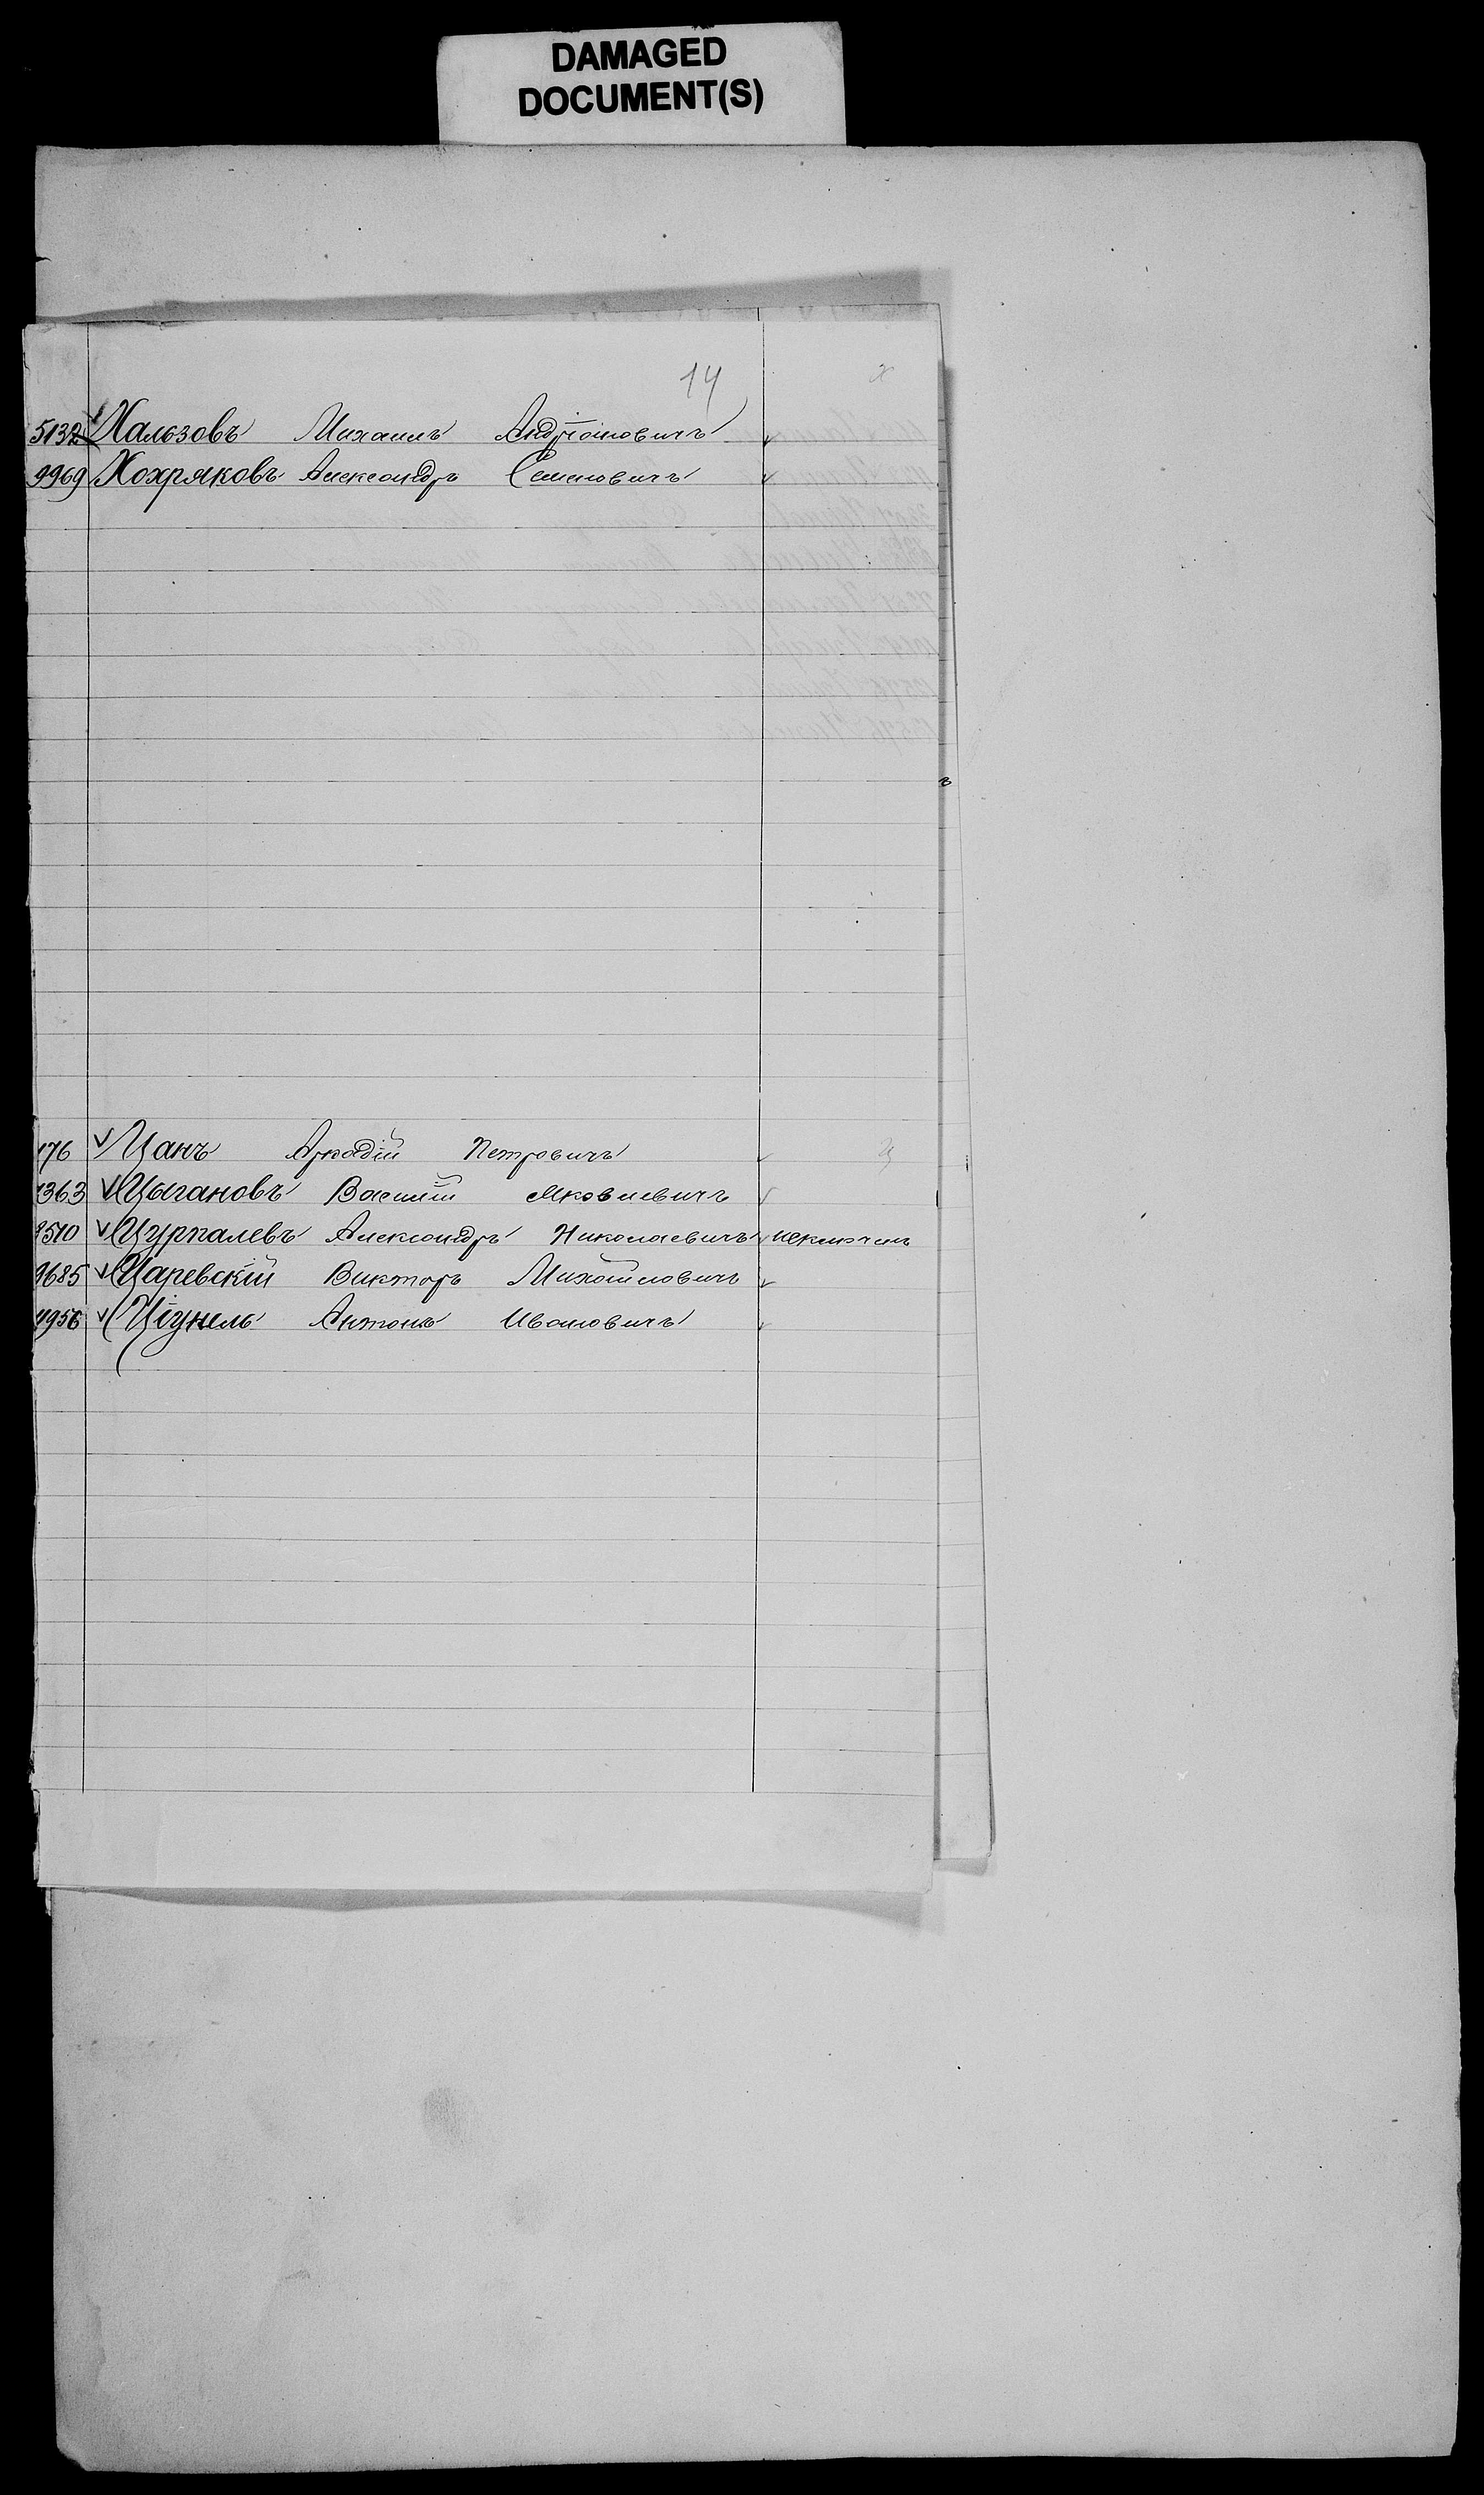 DAMAGED
DOCUMENT(S)
14 х
5132 Хальзовъ Михаилъ Андріановичъ
9969 Хохряковъ Александръ Семеновичъ
176 Цанъ Аркадій Петровичъ ц
1363 Цыгановъ Василій Яковлевичъ
8510 Цурпалевъ Александръ Николаевичъ исключенъ
9685 Царевскій Викторъ Михайловичъ
4956 Ціунель Антонъ Ивановичъ